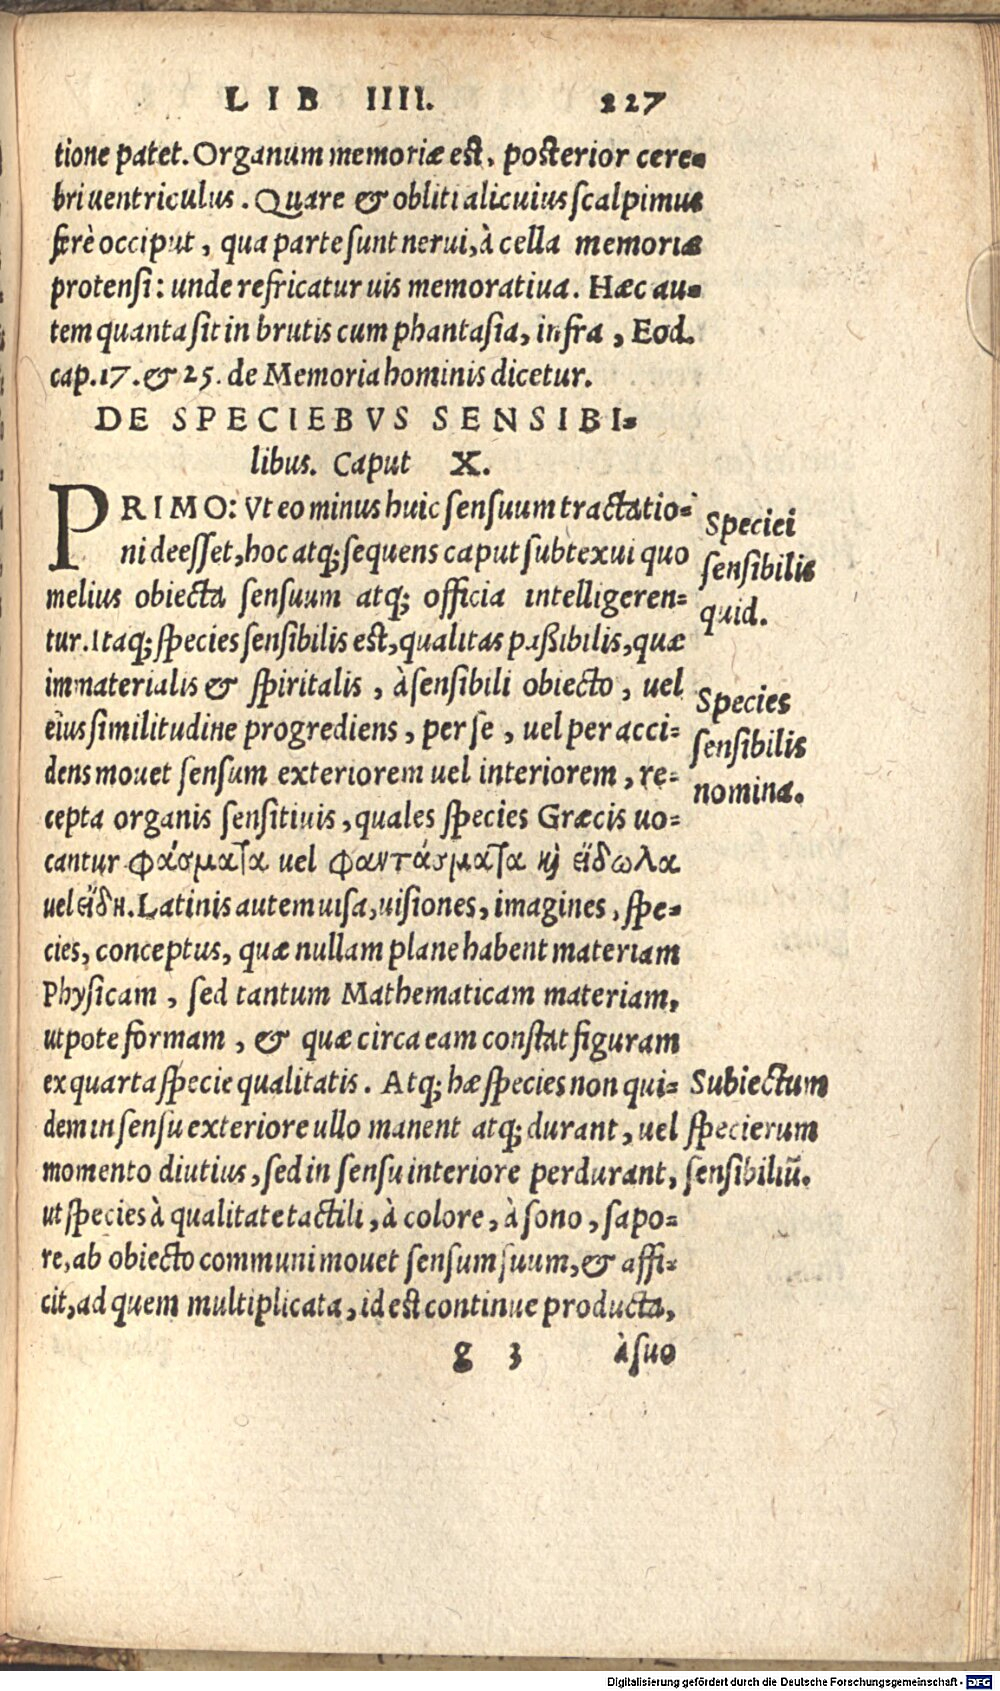 LIB IIII. 227
tione patet. Organum memoriæ est, posterior cere-
bri uentriculus. Quare & obliti alicuius scalpimus
ferè occiput, qua parte sunt nerui, à cella memoriæ
protensi: unde refricatur uis memoratiua. Hæc au-
tem quanta sit in brutis cum phantasia, infra, Eod.
cap. 17. & 25. de Memoria hominis dicetur.
DE SPECIEBVS SENSIBI-
libus. Caput X.
PRIMO: Vt eo minus huic sensuum tractatio-
ni deesset, hoc atq; sequens caput subtexui quo
melius obiecta sensuum atq; officia intelligeren-
tur. Itaq; species sensibilis est, qualitas paßibilis, quæ
immaterialis & spiritalis, à sensibili obiecto, uel
eius similitudine progrediens, per se, uel per acci-
dens mouet sensum exteriorem uel interiorem, re-
cepta organis sensitiuis, quales species Græcis uo-
cantur φάσματα uel φαντάσματα ϗ εἴδωλα
uel εἴδη. Latinis autem uisa, uisiones, imagines, spe-
cies, conceptus, quæ nullam plane habent materiam
Physicam, sed tantum Mathematicam materiam,
utpote formam, & quæ circa eam constat figuram
ex quarta specie qualitatis. Atq; hæ species non qui-
dem in sensu exteriore ullo manent atq; durant, uel
momento diutius, sed in sensu interiore perdurant,
ut species à qualitate tactili, à colore, à sono, sapo-
re, ab obiecto communi mouet sensum suum, & affi-
cit, ad quem multiplicata, id est continue producta,
g 3 à suo
Speciei
sensibilis
quid.
Species
sensibilis
nomina.
Subiectum
specierum
sensibiliũ.
Digitalisierung gefördert durch die Deutsche Forschungsgemeinschaft - DFG